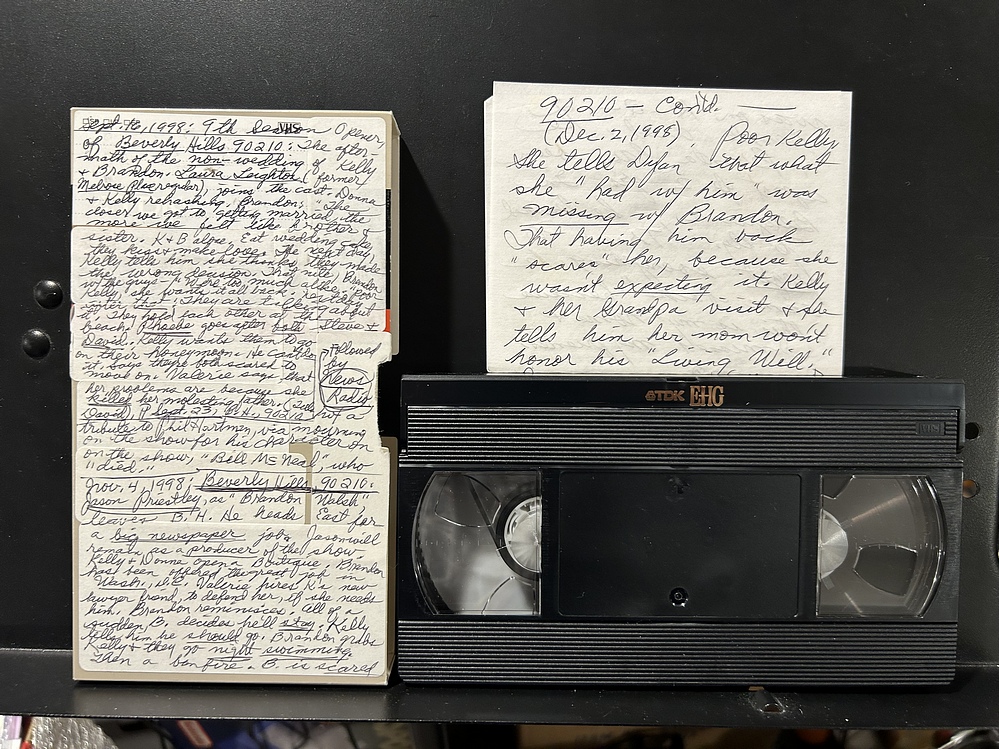 Sept. 16, 1998: 9th Season Opener,
VHS
of Beverly Hills 90210: The after
math of the non-wedding of Kelly
& Brandon. Laura Leighton, (former
Melrose Place regular), joins the cast. Donna
& Kelly rehashing. Brandon: "The
closer we got to getting married, the
more we felt like brother &
sister. K & B alone. Eat wedding cake,
they kiss & make love. The next day,
Kelly tells him she thinks they made
the wrong decision. That nite, Brandon
w/ the guys - "We're too much alike." Poor
Kelly, she wants it all back, regrets
it. They hold each other at the
beach. Phoebe goes after both Steve &
David. Kelly wants them to go
on their honeymoon. He can't do
it, says they're both scared to
move on. Valerie says that
her problems are because she
killed her molesting father. (tells
David). Sept. 23, B.H. 90210
Followed
by
News
Radio
a
tribute to Phil Hartman, via mourning
on the show for his character on
on the show, "Bill McNeal", who
"died."
Nov. 4, 1998: Beverly Hills, 90210:
Jason Priestley, as "Brandon Walsh"
leaves B. H. He heads East for
a big newspaper job. Jason will
remain as a producer of the show.
Kelly & Donna open a Boutique. Brandon
has been offered the great job in
Wash., D.C. Valerie hires K's new
lawyer friend, to defend her, if she needs
him. Brandon reminisces. All of a
sudden, B. decides he'll stay. Kelly
tells him he should go. Brandon grabs
Kelly & they go night swimming.
Then a bonfire. B. is scared
90210 - Cont'd.
(Dec. 2, 1998). Poor Kelly
She tells Dylan that what
she "had w/ him" was
missing w/ Brandon.
That having him back
"scares" her, because she
wasn't expecting it. Kelly
& her Grandpa visit & he
tells him her mom won't
honor his "Living Will,"
TDK EHG
VHS